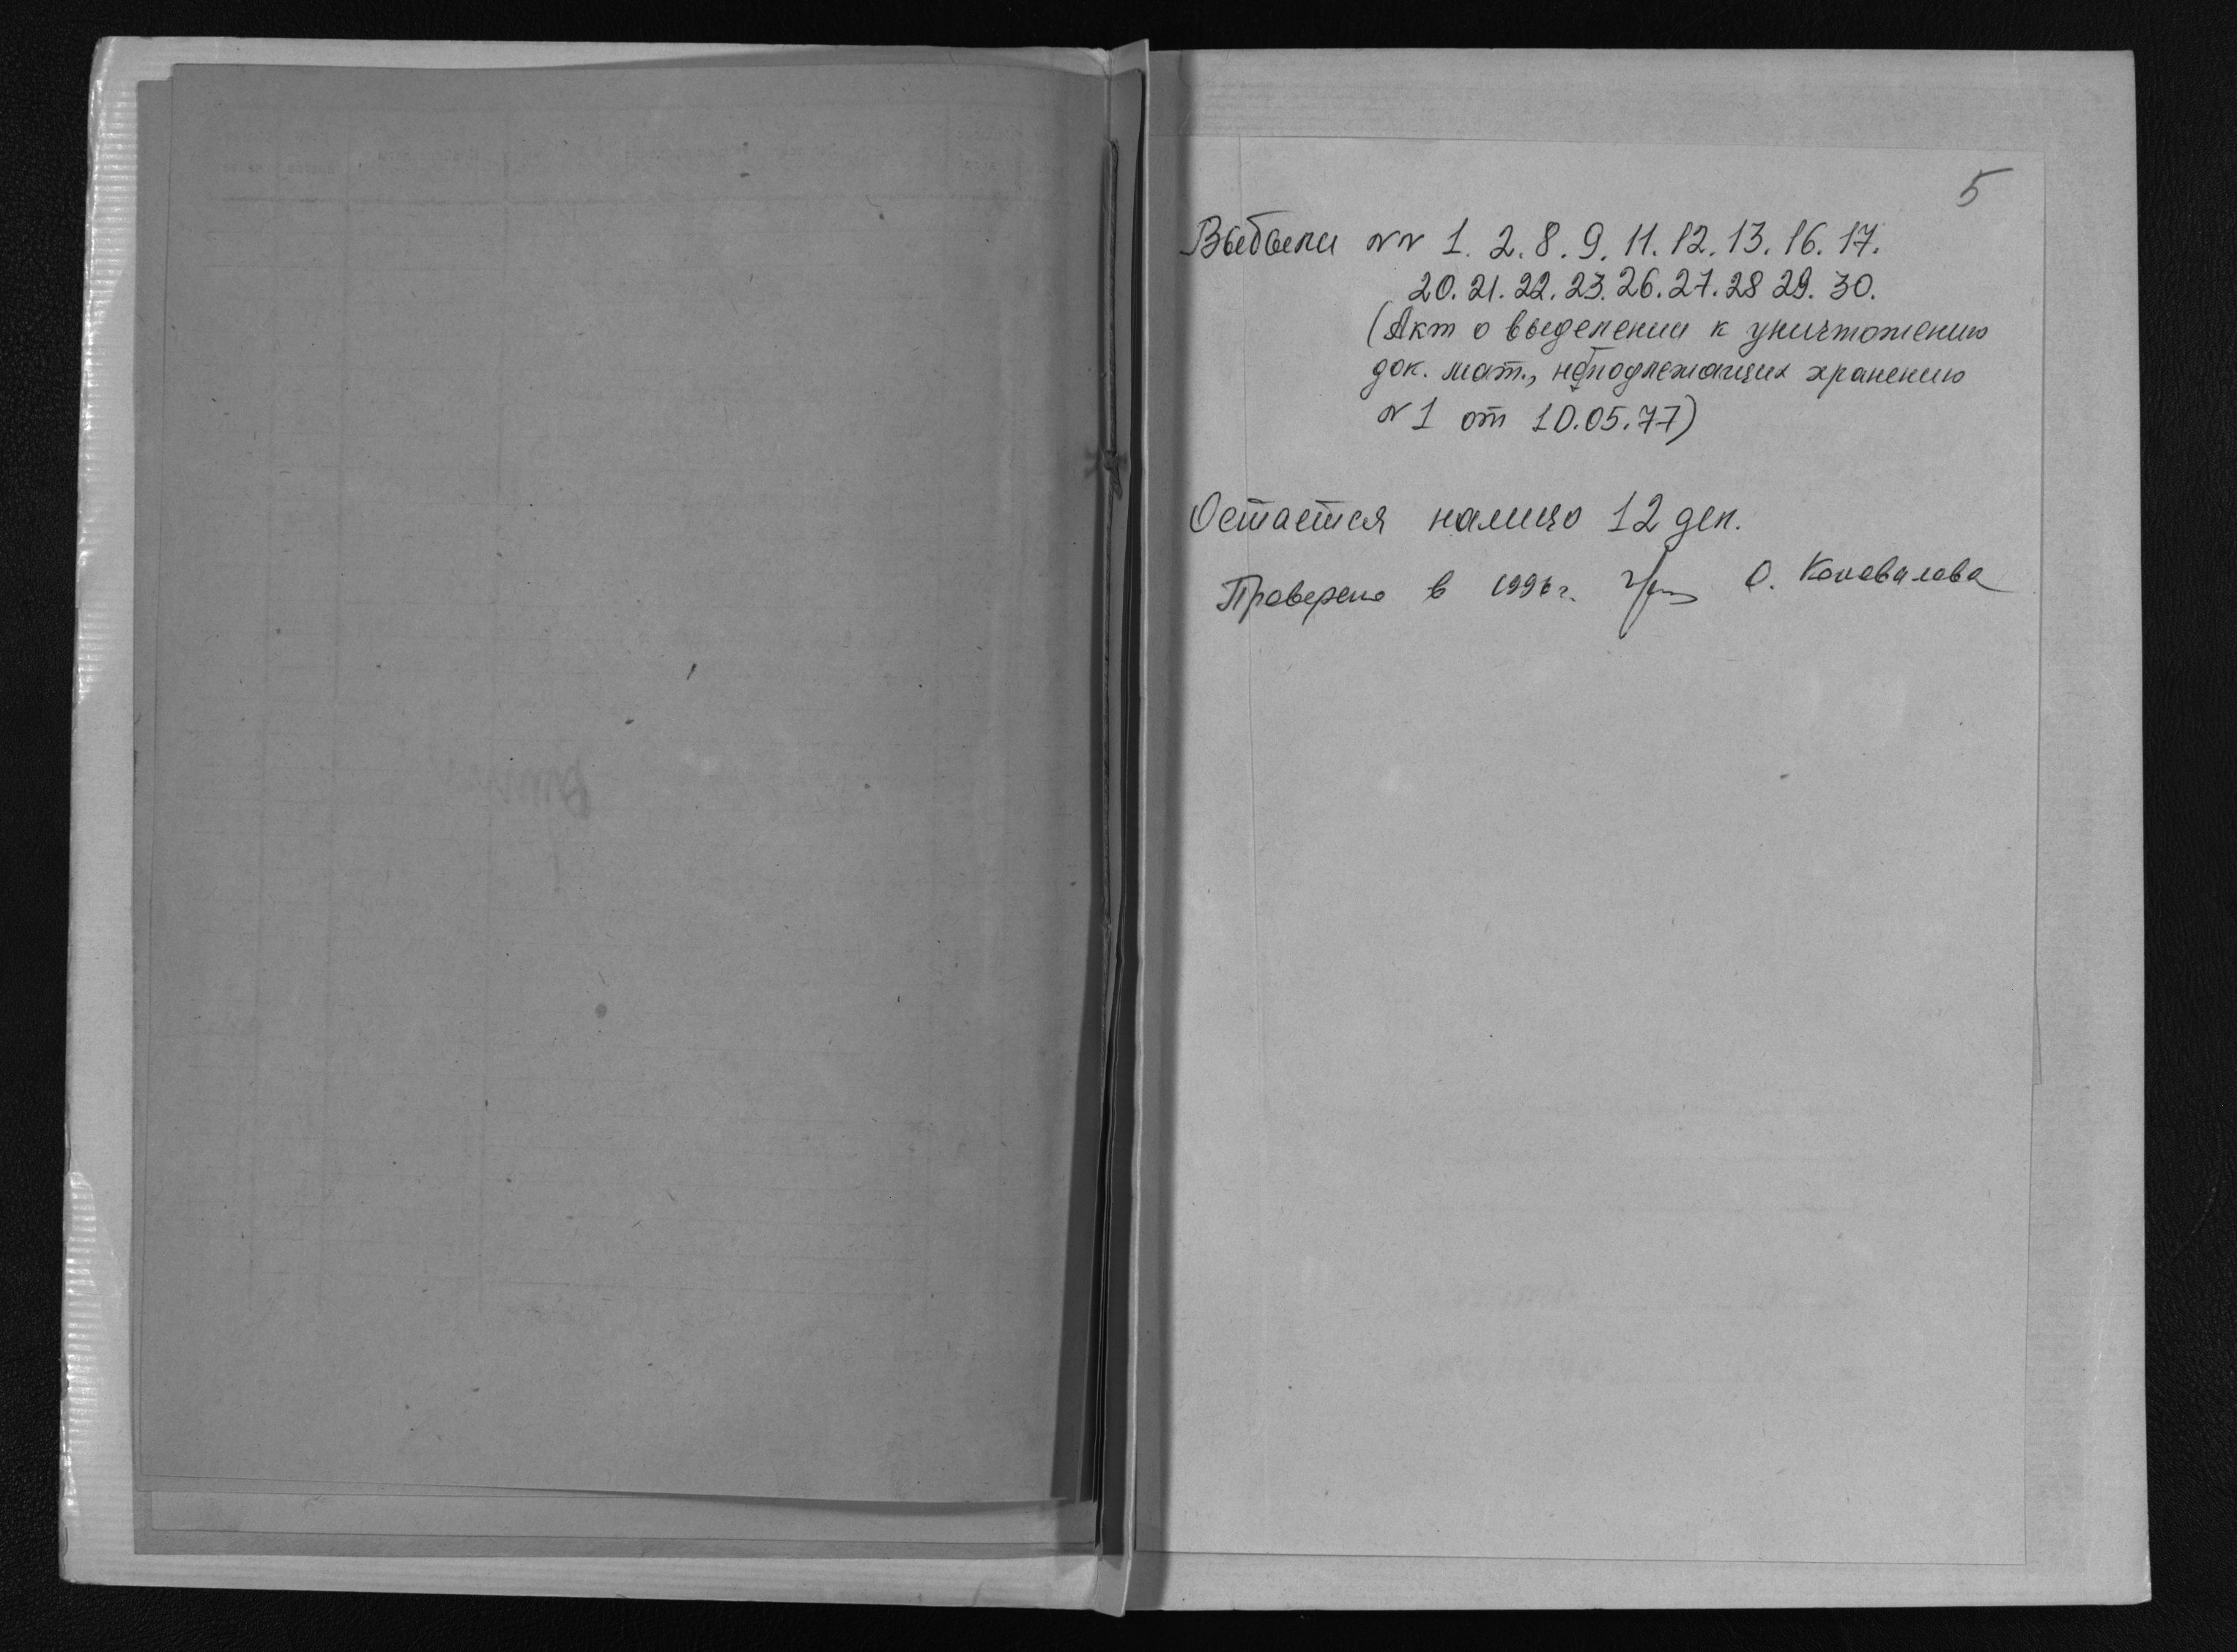 5
Выбыли NN 1. 2. 8. 9. 11. 12. 13. 16. 17.
20. 21. 22. 23. 26. 27. 28 29. 30.
(Акт о выделении к уничтожению
док. мат., неподлежащих хранению
N 1 от 10.05.77)
Остается налицо 12 дел.
Проверено в 1996 г. О. Коновалова